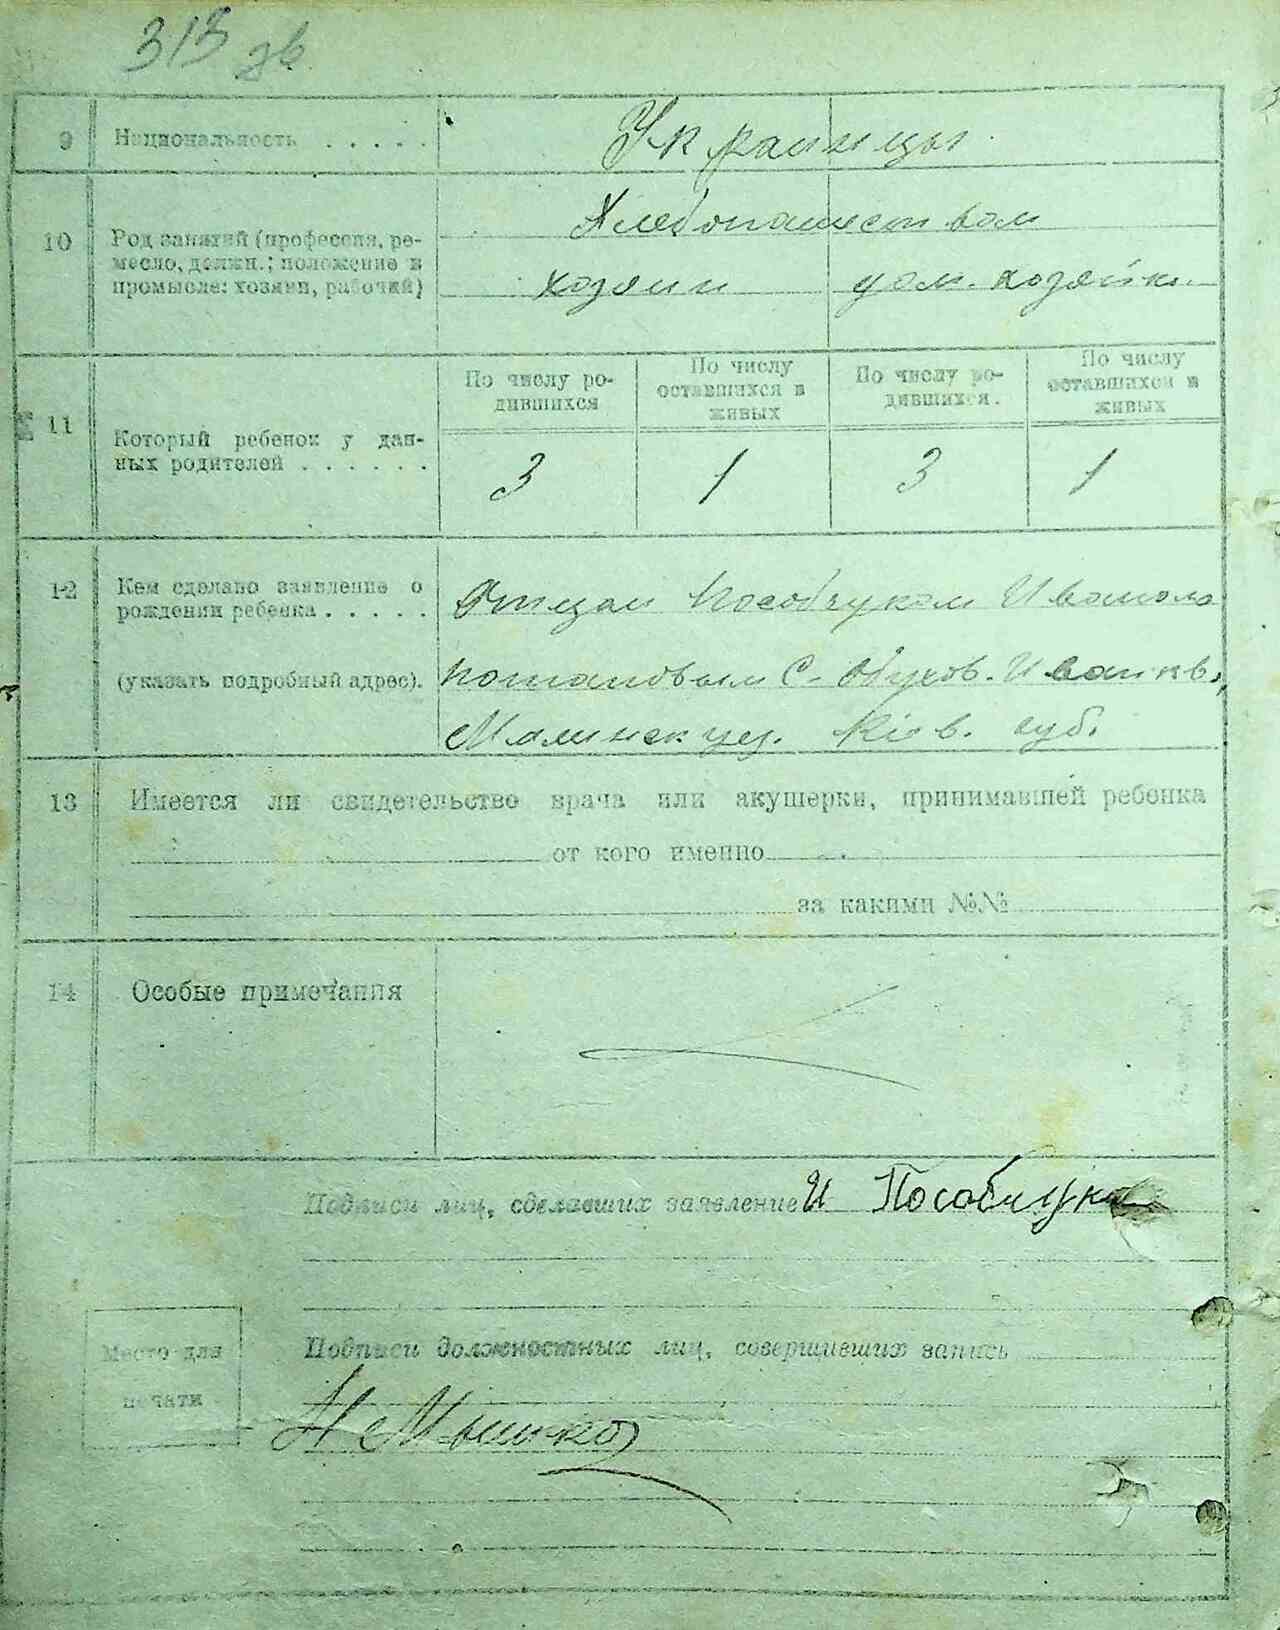 313 зв
9 Национальность . . . . . Украинцы
Хлебопашеством
10 Род занятий (профессия, ре-
месло, должн.; положение в
промысле: хозяин, рабочий) хозяин дом. хозяйк.
По числу ро-
дившихся
По числу
оставшихся в
живых
По числу ро-
дившихся.
По числу
оставшихся в
живых
11 Который ребенок у дан-
ных родителей . . . . . .
3 1 3 1
12 Кем сделано заявление о
рождении ребенка . . . . .
(указать подробный адрес).
Отцом Пособчуком Иваном
Потаповым С. Обухов. Иванкв.,
Малинск уез. Кіев. губ.
13 Имеется ли свидетельство врача или акушерки, принимавшей ребенка
от кого именно
за какими №№
14 Особые примечания
Подписи лиц, сделавших заявление И Пособчук
Подписи должностных лиц, совершивших запись
Место для
печати